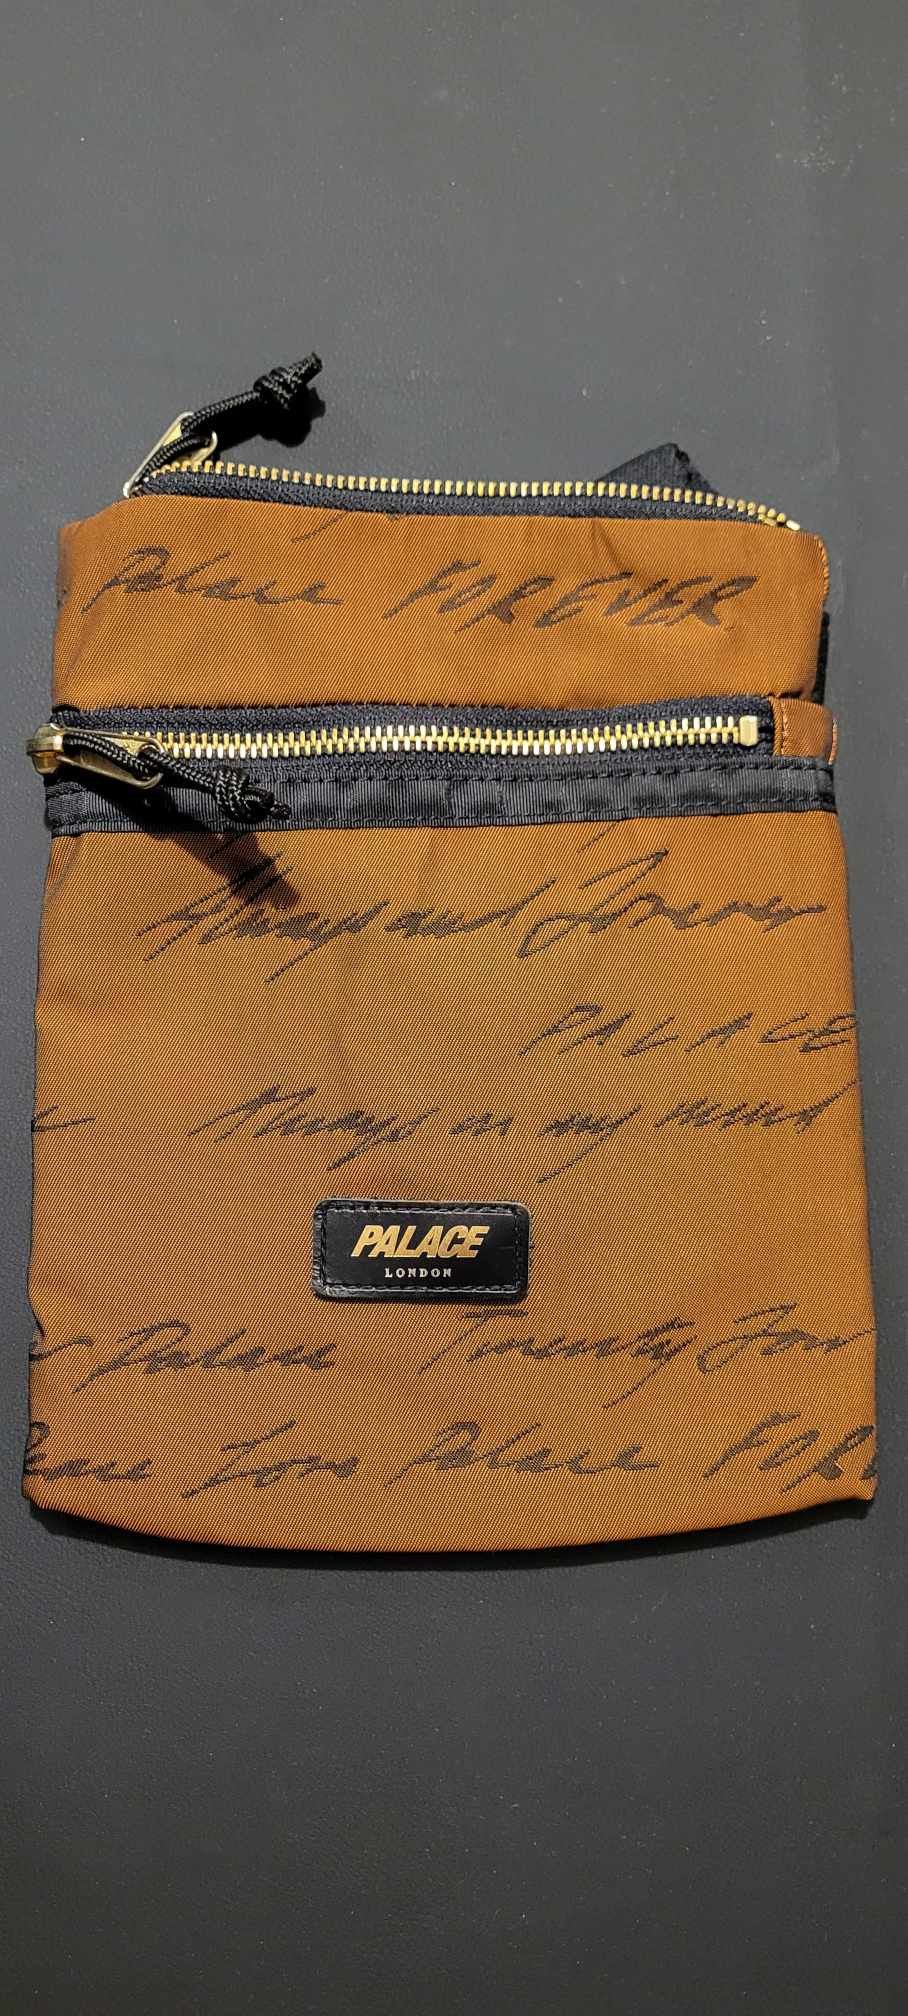 Palace FOREVER
Always and Forever
PALACE
Always in my mind
PALACE
LONDON
Palace Twenty Four
Love Palace FORE